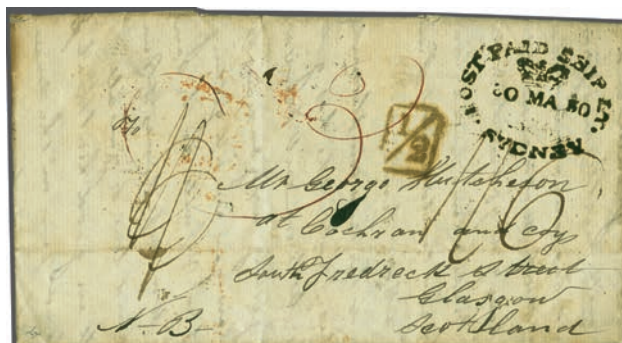 POST PAID SHIP LR.
30 MA 30
SYDNEY
1/2
3
1/6
Mr George Hutcheson
at Cochran and Coy
South Fredreck Street
Glasgow
Scotland
N-B-